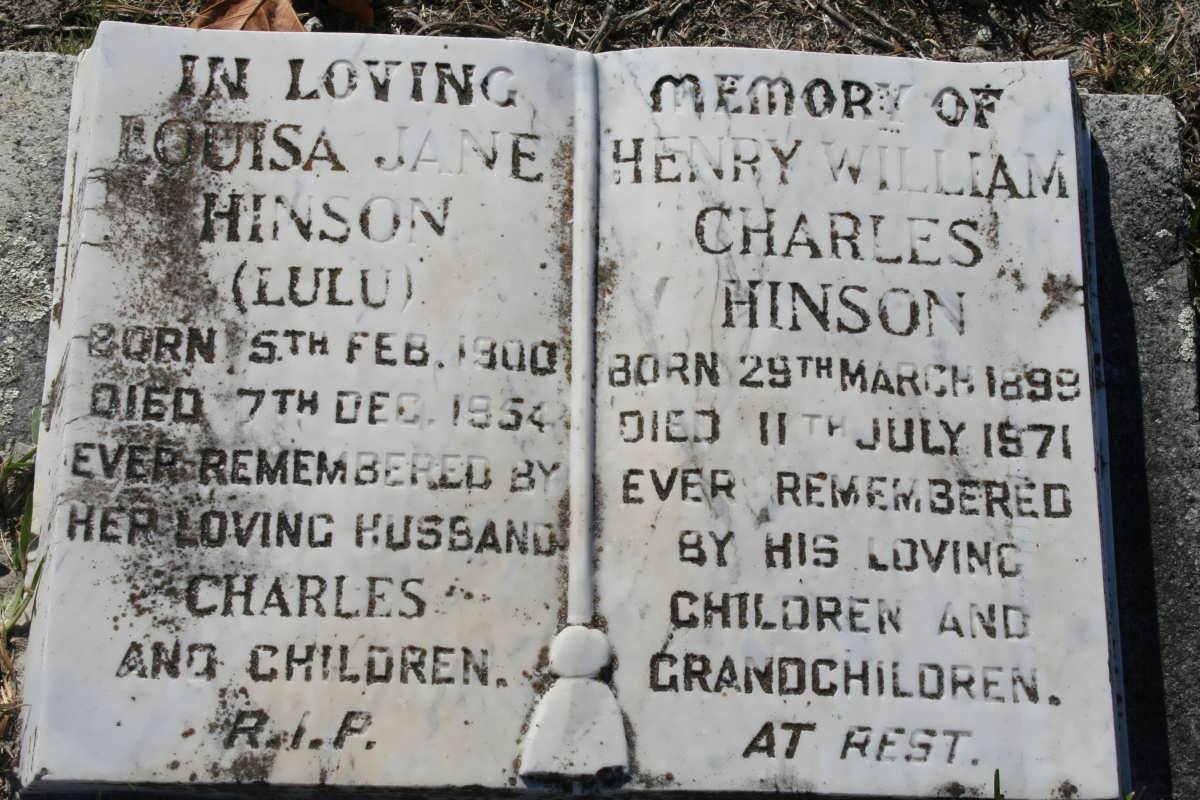 IN LOVING
LOUISA JANE
HINSON
(LULU)
BORN 5TH FEB. 1900
DIED 7TH DEC. 1954
EVER REMEMBERED BY
HER LOVING HUSBAND
CHARLES
AND CHILDREN.
R.I.P.
MEMORY OF
HENRY WILLIAM
CHARLES
HINSON
BORN 29TH MARCH 1899
DIED 11TH JULY 1971
EVER REMEMBERED
BY HIS LOVING
CHILDREN AND
GRANDCHILDREN.
AT REST.